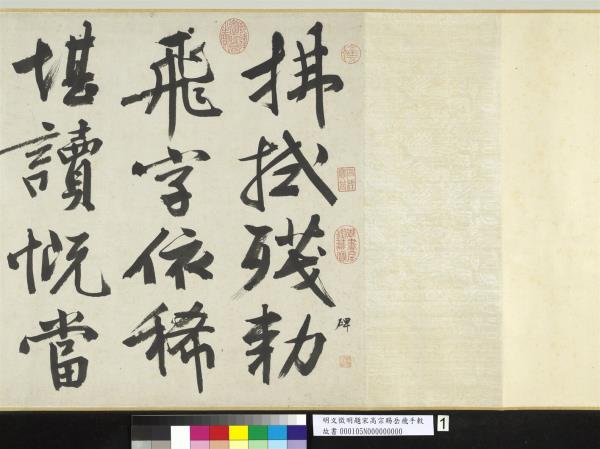 拂拭殘勅
碑
飛字依稀
堪讀慨當
明文徵明題宋高宗賜岳飛手敕
故書 000105N000000000
1